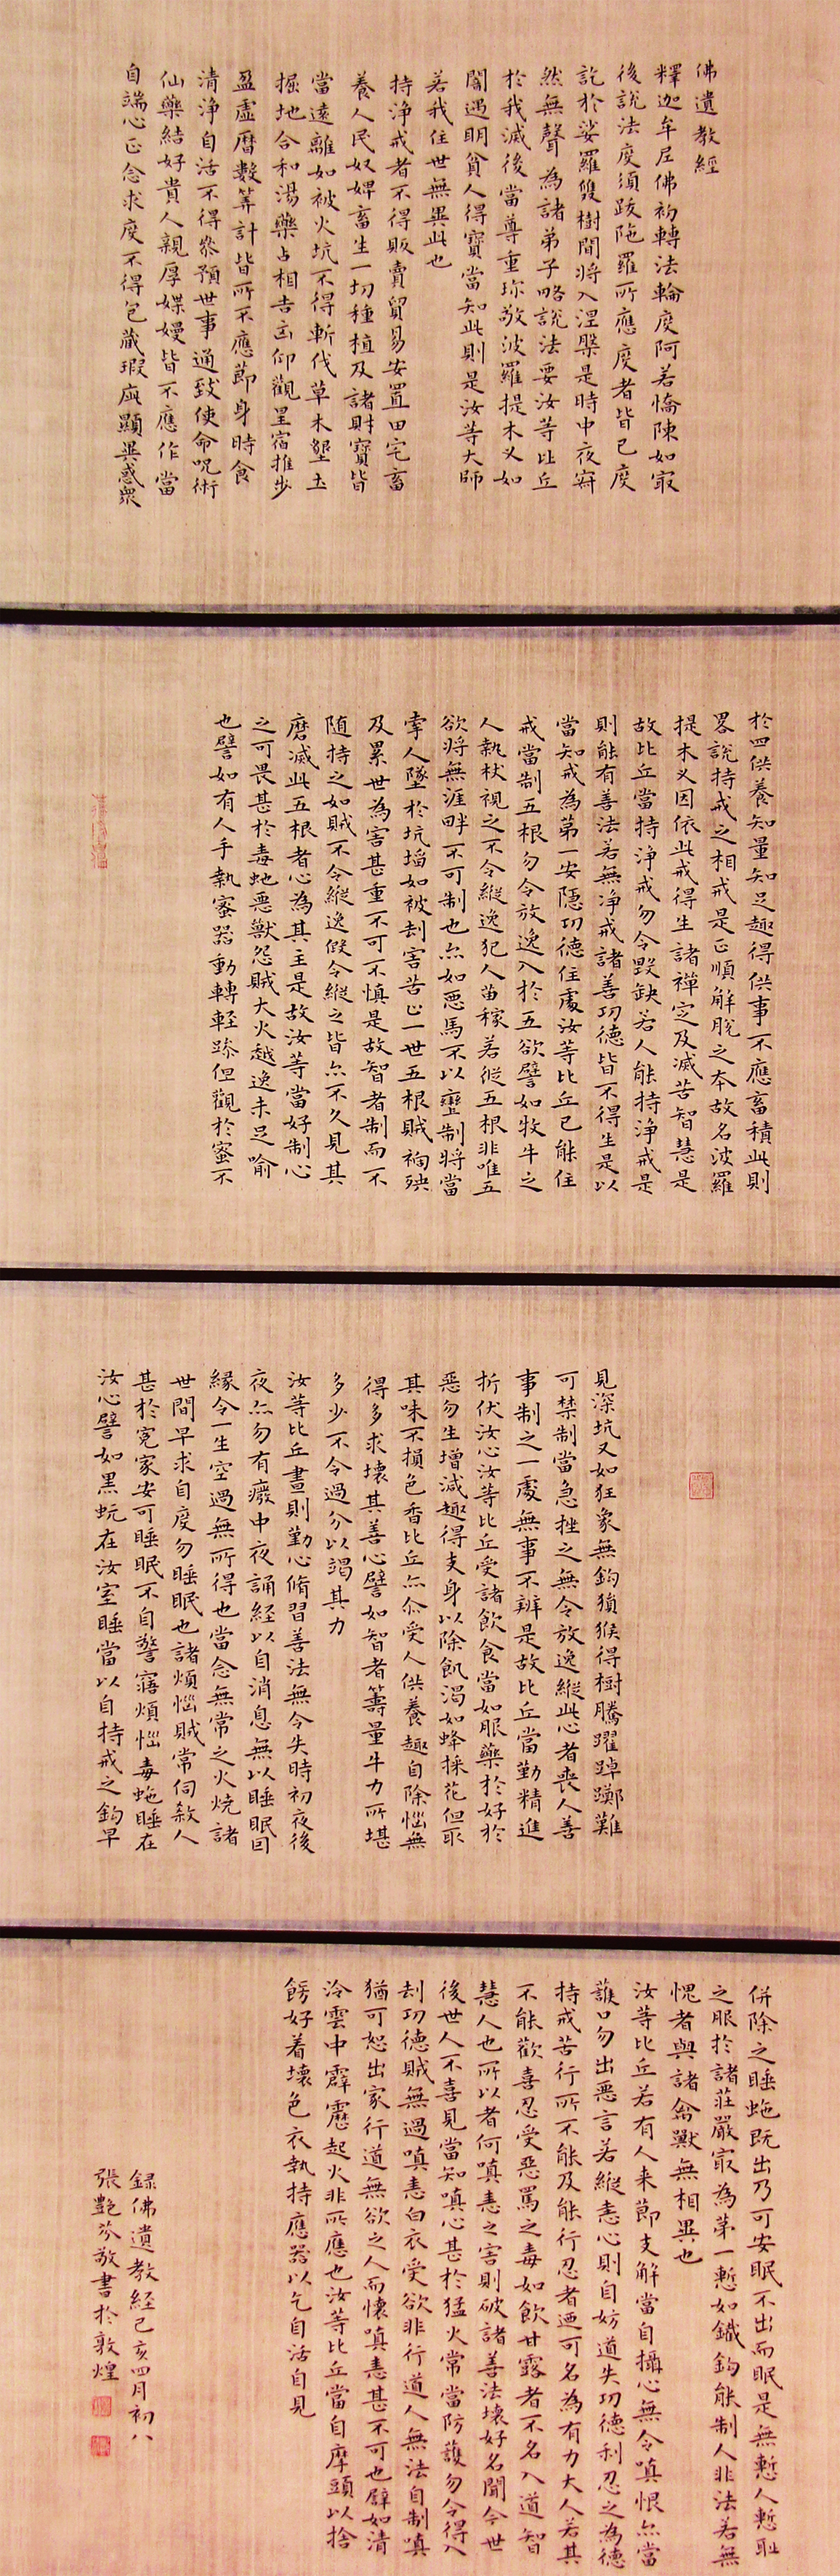 佛遺教經
釋迦牟尼佛初轉法輪度阿若憍陳如㝡
後說法度須跋陁羅所應度者皆已度
訖於娑羅雙樹間將入涅槃是時中夜寂
然無聲為諸弟子略說法要汝等比丘
於我滅後當尊重珎敬波羅提木叉如
闇遇明貧人得寶當知此則是汝等大師
若我住世無異此也
持淨戒者不得販賣貿易安置田宅畜
養人民奴婢畜生一切種植及諸財寶皆
當遠離如被火坑不得斬伐草木墾土
掘地合和湯藥占相吉凶仰觀星宿推步
盈虛曆數筭計皆所不應節身時食
清淨自活不得叅預世事通致使命呪術
仙藥結好貴人親厚媟嫚皆不應作當
自端心正念求度不得包藏瑕疵顯異惑衆
於四供養知量知足趣得供事不應畜積此則
畧說持戒之相戒是正順解脫之夲故名波羅
提木叉因依此戒得生諸禪定及滅苦智慧是
故比丘當持淨戒勿令毀缺若人能持淨戒是
則能有善法若無淨戒諸善功德皆不得生是以
當知戒為第一安隱功德住處汝等比丘已能住
戒當制五根勿令放逸入於五欲譬如牧牛之
人執杖視之不令縱逸犯人苗稼若從五根非唯五
欲將無涯畔不可制也亦如惡馬不以轡制將當
牽人墜於坑埳如被刦害苦止一世五根賊禍殃
及累世為害甚重不可不慎是故智者制而不
随持之如賊不令縱逸假令縱之皆亦不久見其
磨滅此五根者心為其主是故汝等當好制心
之可畏甚於毒虵惡獸怨賊大火越逸未足喻
也譬如有人手執蜜器動轉輕踪但觀於蜜不
見深坑又如狂象無鈎猿猴得樹騰躍踔躑難
可禁制當急挫之無令放逸縱此心者喪人善
事制之一處無事不辦是故比丘當勤精進
折伏汝心汝等比丘受諸飲食當如服藥於好於
惡勿生增減趣得支身以除飢渴如蜂採花但取
其味不損色香比丘亦尒受人供養趣自除惱無
得多求壞其善心譬如智者籌量牛力所堪
多少不令過分以竭其力
汝等比丘晝則勤心脩習善法無令失時初夜後
夜亦勿有癈中夜誦経以自消息無以睡眠因
緣令一生空過無所得也當念無常之火燒諸
世間早求自度勿睡眠也諸煩惱賊常伺煞人
甚於寃家安可睡眠不自警寤煩惱毒虵睡在
汝心譬如黑蚖在汝室睡當以自持戒之鈎早
併除之睡虵既出乃可安眠不出而眠是無慙人慙耻
之服於諸莊嚴㝡為第一慙如鐵鈎能制人非法若無
愧者與諸禽獸無相異也
汝等比丘若有人来節支解當自攝心無令嗔恨亦當
護口勿出惡言若縱恚心則自妨道失功德利忍之為德
持戒苦行所不能及能行忍者迺可名為有力大人若其
不能歡喜忍受惡罵之毒如飲甘露者不名入道智
慧人也所以者何嗔恚之害則破諸善法壞好名聞今世
後世人不喜見當知嗔心甚於猛火常當防護勿令得入
刦功德賊無過嗔恚白衣受欲非行道人無法自制嗔
猶可恕出家行道無欲之人而懷嗔恚甚不可也譬如清
泠雲中霹靂起火非所應也汝等比丘當自摩頭以捨
餝好着壞色衣執持應器以乞自活自見
録佛遺教経己亥四月初八
張艷芬敬書於敦煌